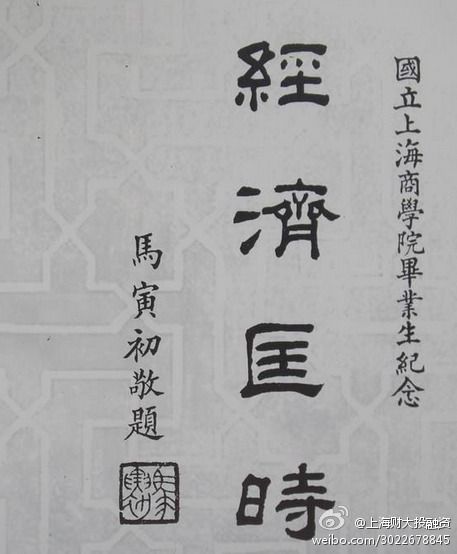 國立上海商學院畢業生紀念
經濟匡時
馬寅初敬題
@上海财大投融资
weibo.com/3022678845